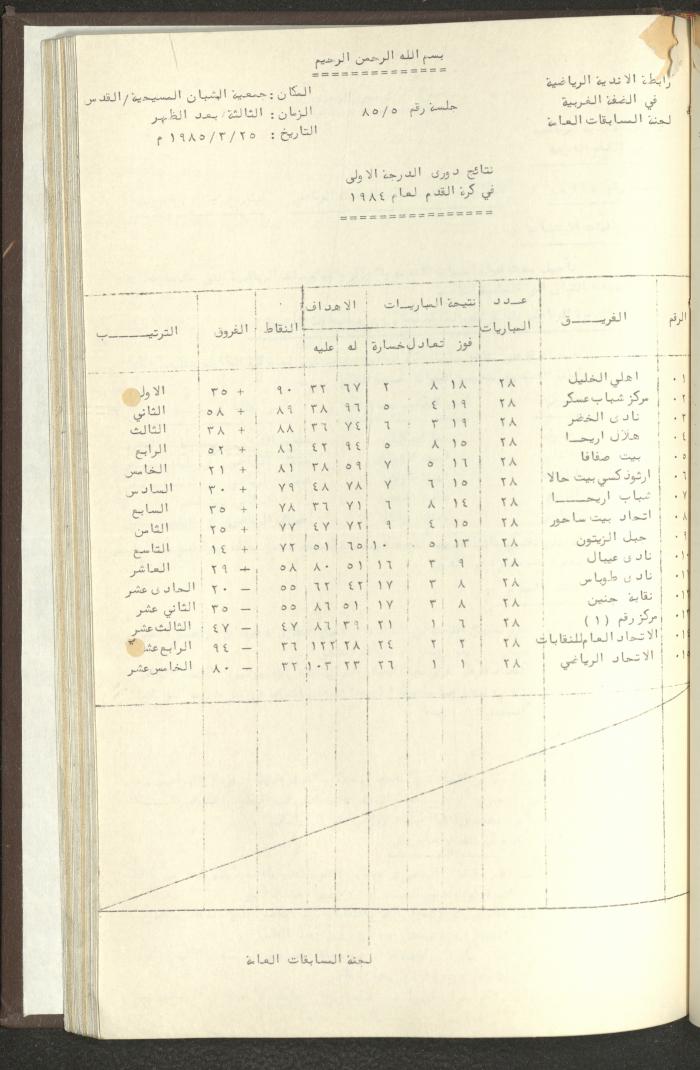 بسم الله الرحمن الرحيم
رابطة الاندية الرياضية
في الضفة الغربية
لجنة المسابقات العامة
جلسة رقم ٨٥/٥
المكان: جمعية الشبان المسيحية/القدس
الزمان: الثالثة/بعد الظهر
التاريخ: ١٩٨٥/٣/٢٥ م
نتائج دورى الدرجة الاولى
في كرة القدم لعام ١٩٨٤
الرقم الفريـــق عــدد المباريات نتيجة المباريــات الاهداف النقاط الفروق الترتيـــــب
فوز تعادل خسارة له عليه
٠١ اهلي الخليل ٢٨ ١٨ ٨ ٢ ٦٧ ٣٢ ٩٠ + ٣٥ الاول
٠٢ مركز شباب عسكر ٢٨ ١٩ ٤ ٥ ٩٦ ٣٨ ٨٩ + ٥٨ الثاني
٠٣ نادى الخضر ٢٨ ١٩ ٣ ٦ ٧٤ ٣٦ ٨٨ + ٣٨ الثالث
٠٤ هلال اريحــا ٢٨ ١٥ ٨ ٥ ٩٤ ٤٢ ٨١ + ٥٢ الرابع
٠٥ بيت صفافا ٢٨ ١٦ ٥ ٧ ٥٩ ٣٨ ٨١ + ٢١ الخامس
٠٦ ارثوذكسي بيت جالا ٢٨ ١٥ ٦ ٧ ٧٨ ٤٨ ٧٩ + ٣٠ السادس
٠٧ شباب اريحـــــا ٢٨ ١٤ ٨ ٦ ٧١ ٣٦ ٧٨ + ٣٥ السابع
٠٨ اتحاد بيت ساحور ٢٨ ١٥ ٤ ٩ ٧٢ ٤٧ ٧٧ + ٢٥ الثامن
٠٩ جبل الزيتون ٢٨ ١٣ ٥ ١٠ ٦٥ ٥١ ٧٢ + ١٤ التاسع
٠١٠ نادى عيبال ٢٨ ٩ ٣ ١٦ ٥١ ٨٠ ٥٨ — ٢٩ العاشر
٠١١ نادى طوباس ٢٨ ٨ ٣ ١٧ ٤٢ ٦٢ ٥٥ — ٢٠ الحادى عشر
٠١٢ نقابة جنين ٢٨ ٨ ٣ ١٧ ٥١ ٨٦ ٥٥ — ٣٥ الثاني عشر
٠١٣ مركز رقم (١) ٢٨ ٦ ١ ٢١ ٣٩ ٨٦ ٤٧ — ٤٧ الثالث عشر
٠١٤ الاتحاد العام للنقابات ٢٨ ٢ ٢ ٢٤ ٢٨ ١٢٢ ٣٦ — ٩٤ الرابع عشر
٠١٥ الاتحاد الرياضي ٢٨ ١ ١ ٢٦ ٢٣ ١٠٣ ٣٢ — ٨٠ الخامس عشر
لجنة المسابقات العامة